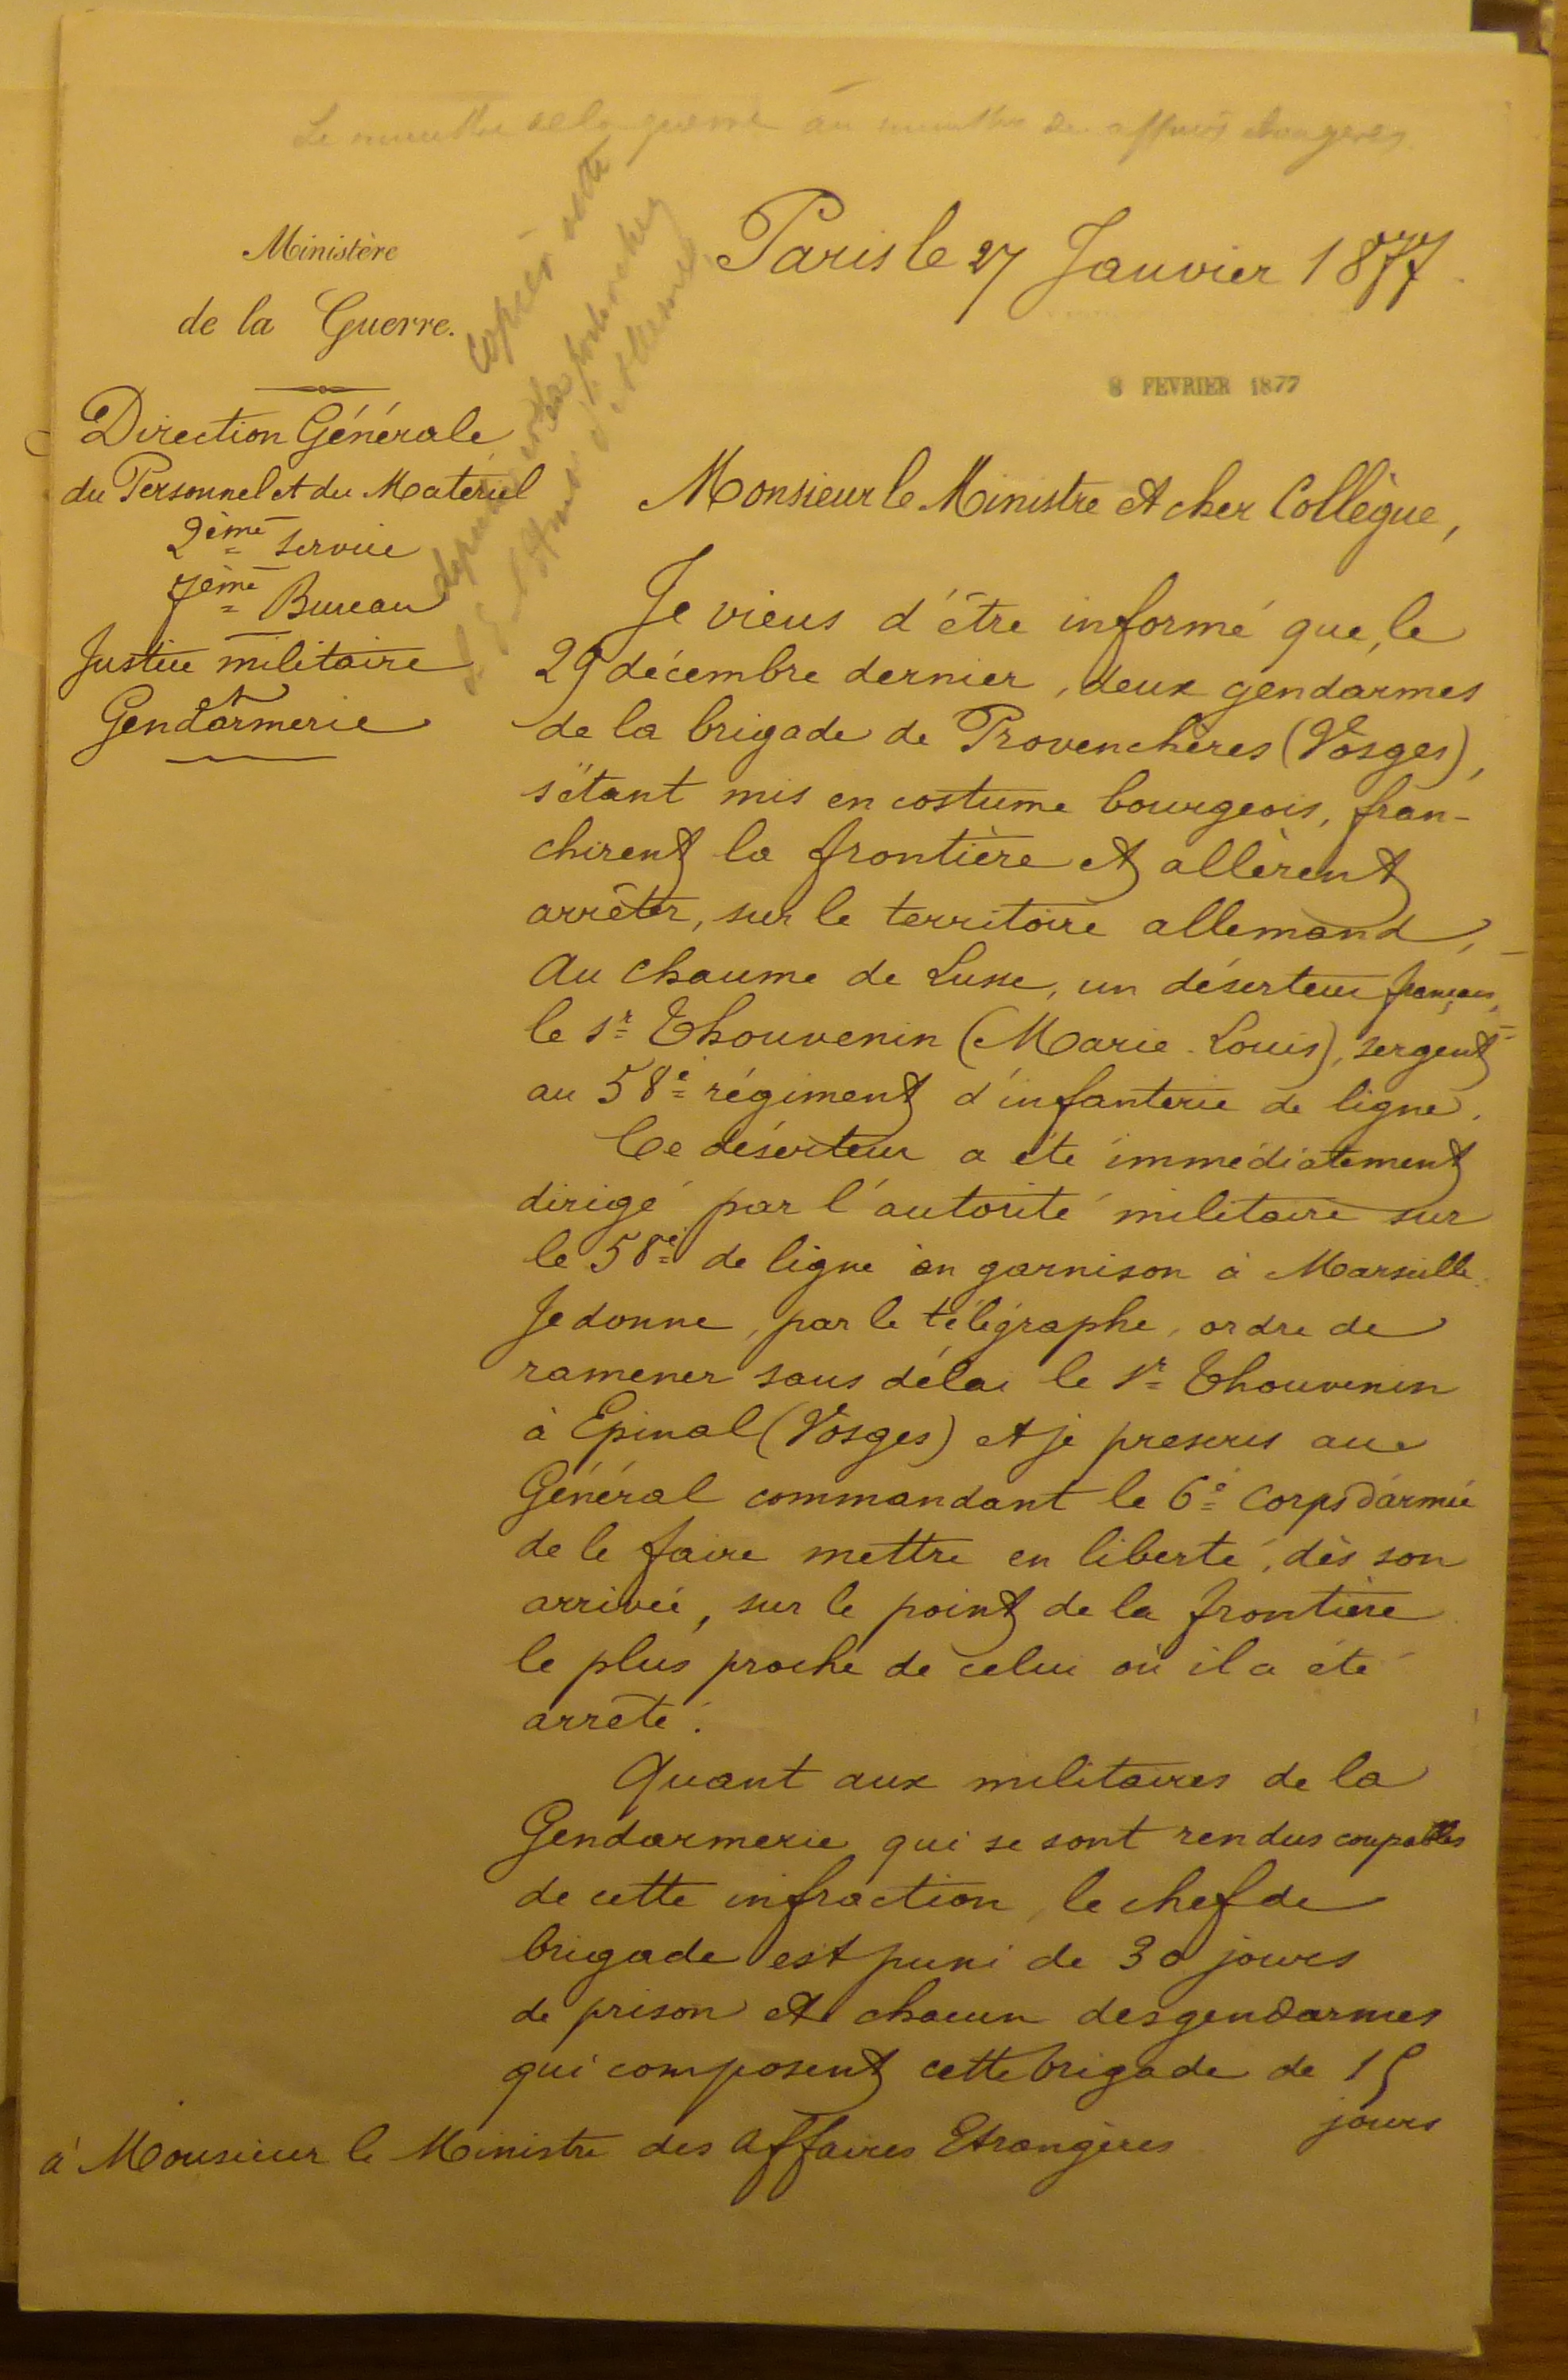 Le ministre de la guerre au ministre des affaires étrangères
Ministère
de la Guerre.
Direction Générale
du Personnel et du Matériel
2ème Service
7ème Bureau
Justice militaire
et
Gendarmerie
Copier cette
Paris le 27 Janvier 1877.
8 FEVRIER 1877
Monsieur le Ministre et cher Collègue,
Je viens d'être informé que, le
29 décembre dernier, deux gendarmes
de la brigade de Provenchères (Vosges),
s'étant mis en costume bourgeois, fran-
chirent la frontière et allèrent
arrêter, sur le territoire allemand,
au Chaume de Lusse, un déserteur français,
le sr Thouvenin (Marie-Louis), sergent
au 58e régiment d'infanterie de ligne.
Ce déserteur a été immédiatement
dirigé par l'autorité militaire sur
le 58e de ligne en garnison à Marseille.
Je donne, par le télégraphe, ordre de
ramener sans délai le sr Thouvenin
à Epinal (Vosges) et je prescris au
Général commandant le 6e Corps d'armée
de le faire mettre en liberté, dès son
arrivée, sur le point de la frontière
le plus proche de celui où il a été
arrêté.
Quant aux militaires de la
Gendarmerie qui se sont rendus coupables
de cette infraction, le chef de
brigade est puni de 30 jours
de prison et chacun des gendarmes
qui composent cette brigade de 15
jours
à Monsieur le Ministre des Affaires Etrangères